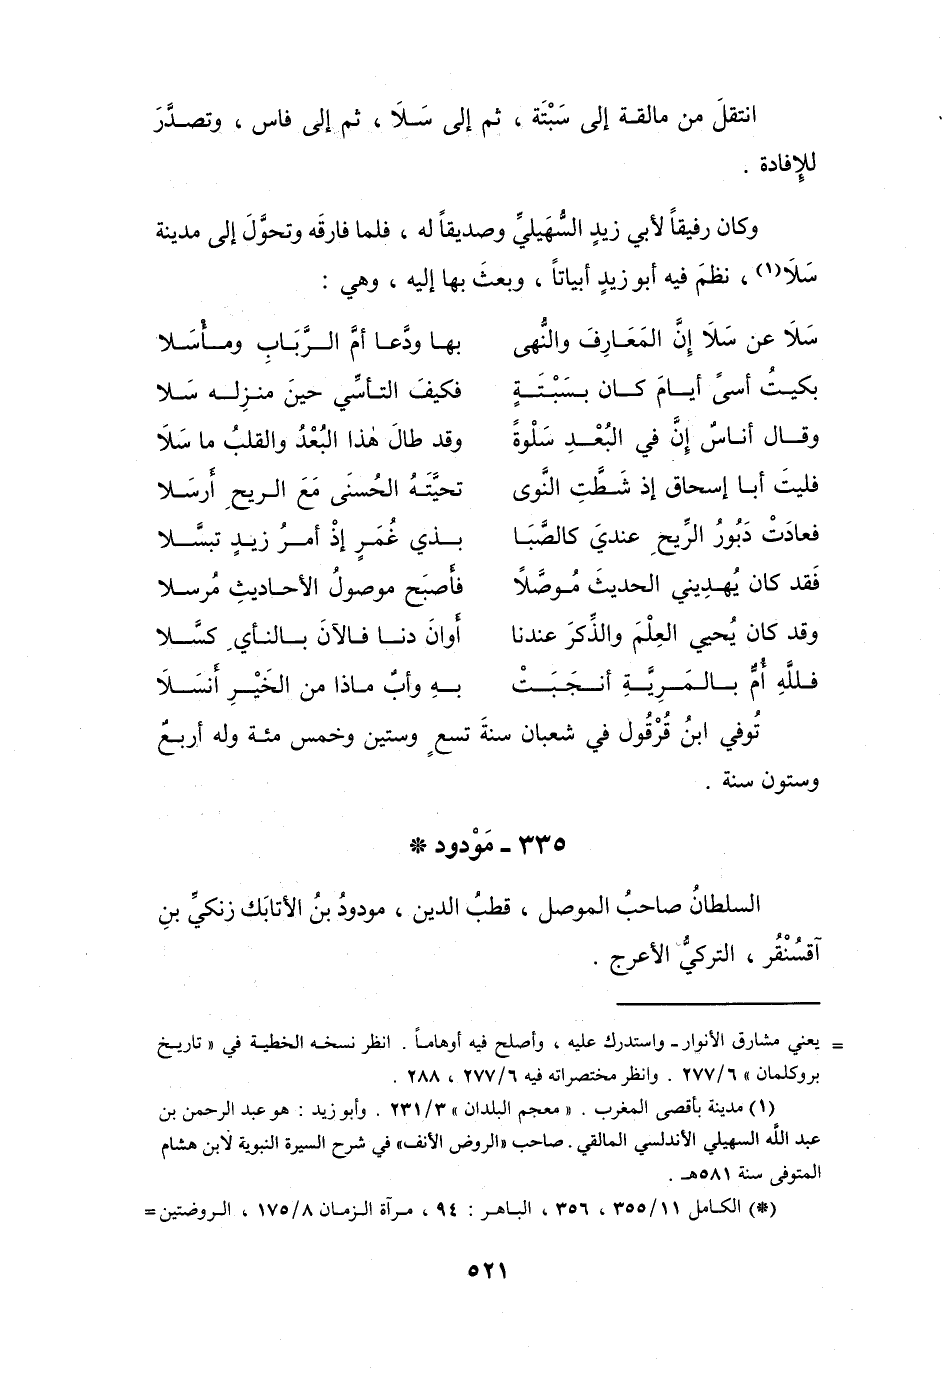 انتقلَ من مالقة إلى سَبْتَة ، ثم إلى سَلَا ، ثم إلى فاس ، وتصدَّرَ
للإِفادة .
وكان رفيقاً لأبي زيدٍ السُّهَيليِّ وصديقاً له ، فلما فارقَه وتحوَّلَ إلى مدينة
سَلَا(١) ، نظمَ فيه أبو زيدٍ أبياتاً ، وبعثَ بها إليه ، وهي :
سَلَا عن سَلَا إنَّ المَعَارِفَ والنُّهى بها ودَّعا أمَّ الرَّبَابِ ومأْسَلا
بكيتُ أسىً أيامَ كان بسَبْتَةٍ فكيفَ التأسِّي حينَ منزله سَلا
وقال أناسٌ إنَّ في البُعْدِ سَلْوةً وقد طالَ هٰذا البُعْدُ والقلبُ ما سَلَا
فليتَ أبا إسحاق إذ شَطَّتِ النَّوى تحيَّتَهُ الحُسنَى مَعَ الريحِ أَرسَلا
فعادَتْ دَبُورُ الرِّيحِ عنديَ كالصَّبَا بذي غُمَرٍ إذْ أمرُ زيدٍ تبسَّلا
فَقد كان يُهدِيني الحديثَ مُوصَّلاً فأَصبَح موصولُ الأحاديثِ مُرسلا
وقد كان يُحيي العِلْمَ والذِّكرَ عندنا أَوانَ دنا فالآنَ بالنأيِ كسَّلا
فللَّهِ أُمٌّ بالمَرِيَّةِ أنجَبَتْ بهِ وأبٌ ماذا من الخَيْرِ أَنسَلَا
تُوفي ابنُ قُرْقُول في شعبان سنةَ تسعٍ وستين وخمس مئة وله أربعٌ
وستون سنة .
٣٣٥ ـ مَوْدود *
السلطانُ صاحبُ الموصل ، قطبُ الدين ، مودودُ بنُ الأتابَك زنكيِّ بنِ
آقسُنْقُر ، التركيُّ الأعرج .
= يعني مشارق الأنوار ـ واستدرك عليه ، وأصلح فيه أوهاماً . انظر نسخه الخطية في « تاريخ
بروكلمان » ٢٧٧/٦ . وانظر مختصراته فيه ٢٧٧/٦ ، ٢٨٨ .
(١) مدينة بأقصى المغرب . « معجم البلدان » ٢٣١/٣ . وأبو زيد : هو عبد الرحمن بن
عبد الله السهيلي الأندلسي المالقي . صاحب «الروض الأنف» في شرح السيرة النبوية لابن هشام
المتوفى سنة ٥٨١هـ .
(*) الكامل ٣٥٥/١١ ، ٣٥٦ ، الباهر : ٩٤ ، مرآة الزمان ١٧٥/٨ ، الروضتين =
٥٢١